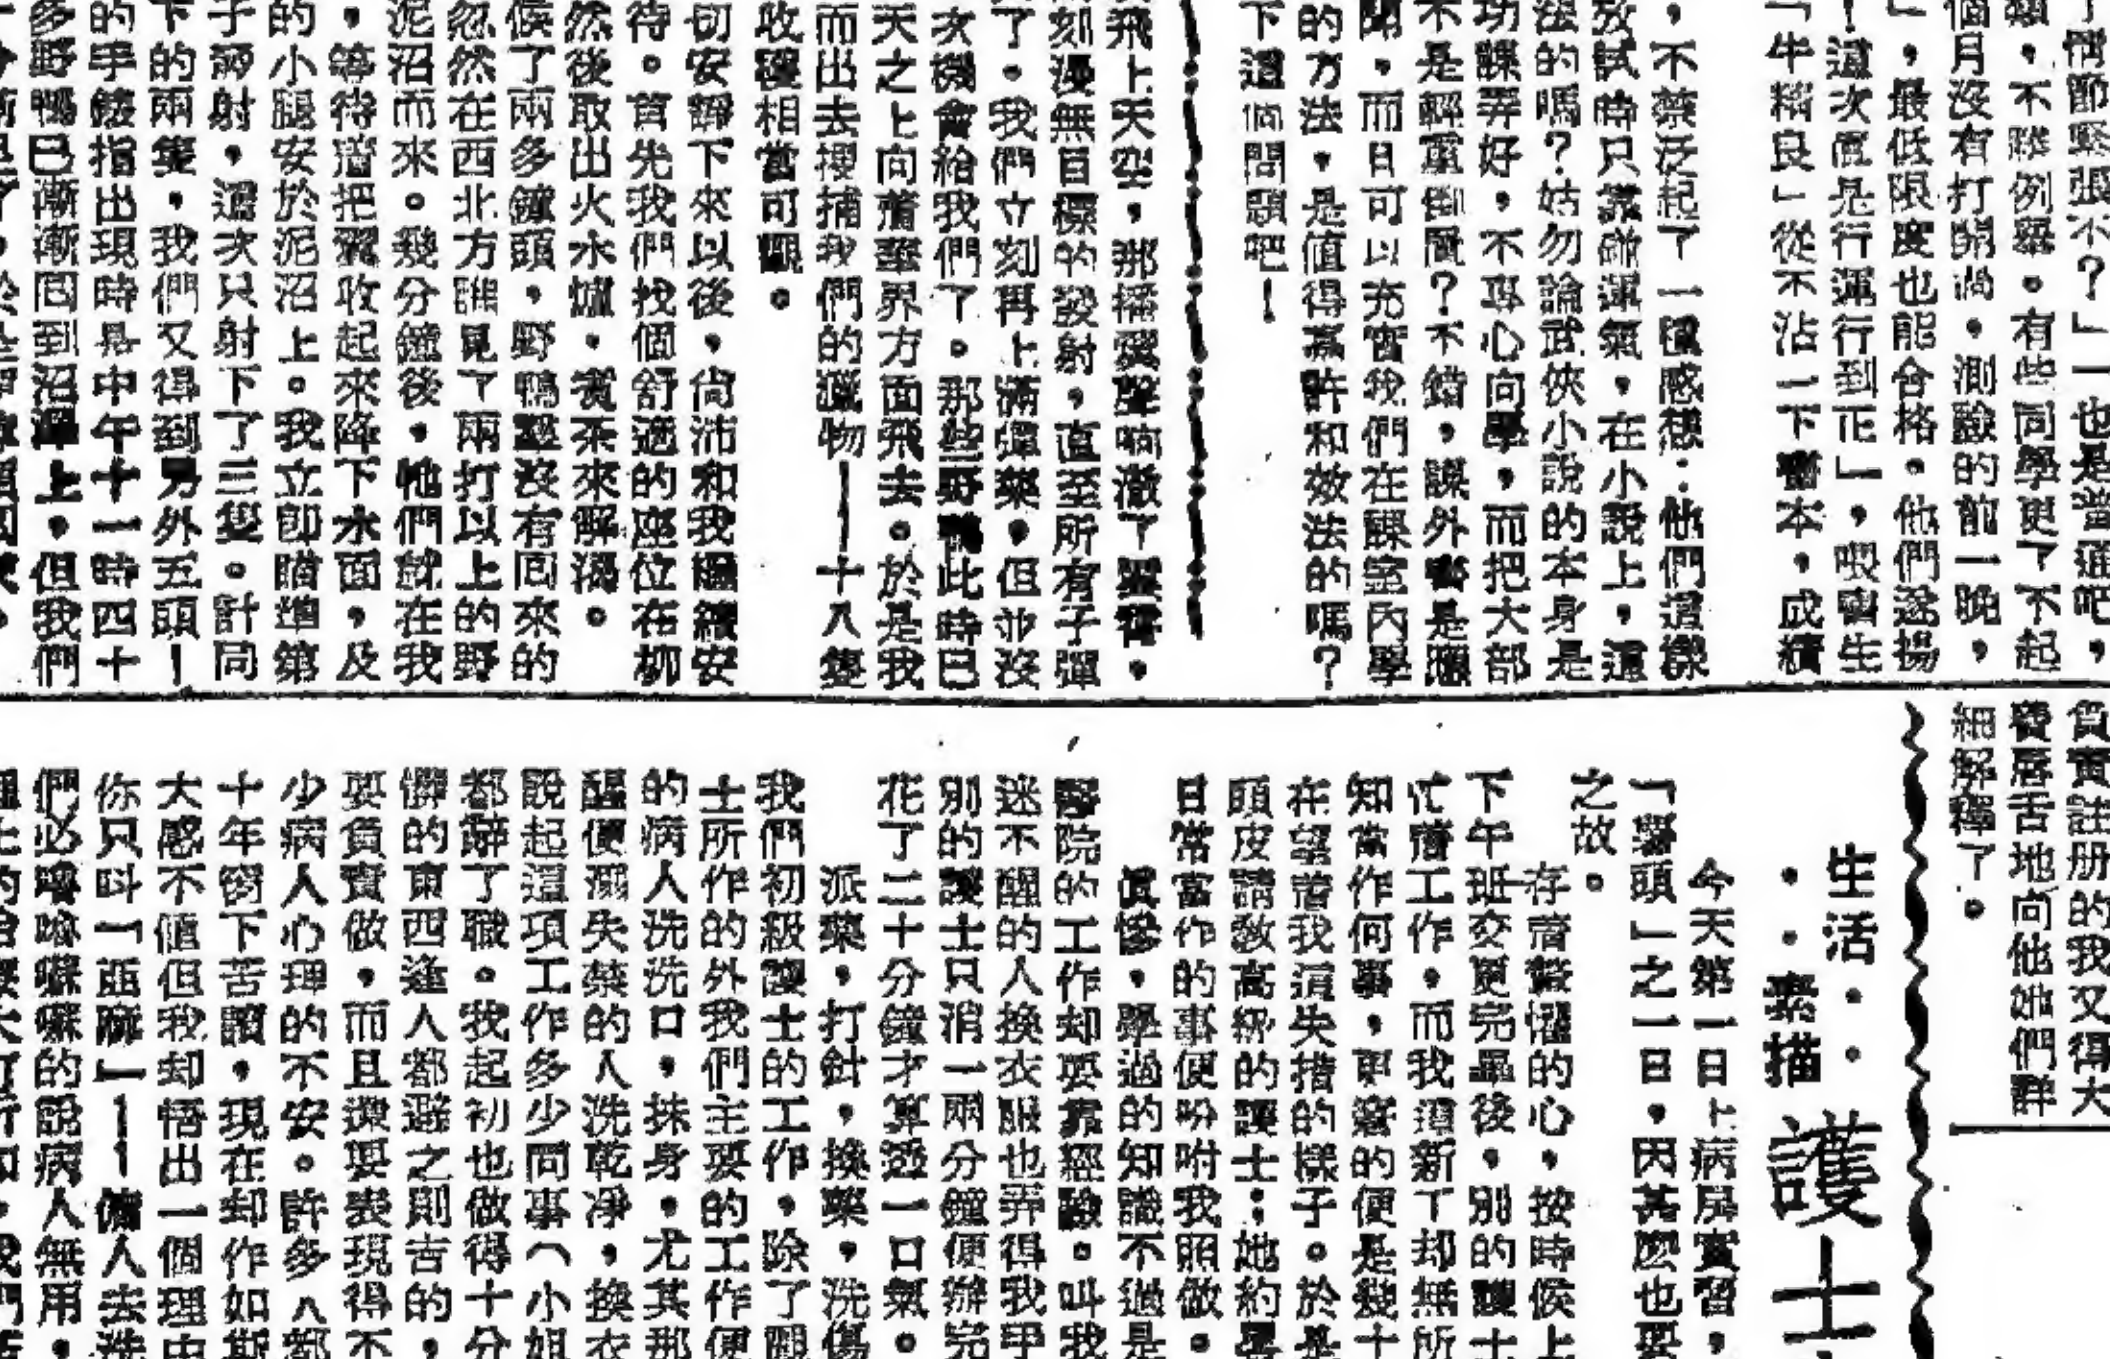 了情節緊張不？」一也是普通吧，
類，不勝例舉。有些同學更了不起
個月沒有打開過。測驗的前一晚，
」，最低限度也能合格。他們遂揚
！這次眞是行運行到正」，喂嚫生
「牛精良」從不沾一下書本，成績
，不禁泛起了一種感想：他們這樣
考試時只靠碰運氣，在小說上，這
法的嗎？姑勿論武俠小說的本身是
功課弄好，不專心向學，而把大部
不是輕重倒置？不錯，課外書是應
聞，而且可以充實我們在課室內學
的方法，是值得嘉許和效法的嗎？
下這個問題吧！
飛上天空，那播翼聲响澈了雲霄，
刻漫無目標的發射，直至所有子彈
了。我們立刻再上滿彈藥，但並沒
次機會給我們了。那些野鴨此時已
天之上向蕭臺界方面飛去。於是我
而出去搜捕我們的獵物——十八隻
收穫相當可觀。
切安靜下來以後，尙沛和我繼續安
待。首先我們找個舒適的座位在柳
然後取出火水爐，煑茶來解渴。
候了兩多鐘頭，野鴨還沒有回來的
忽然在西北方瞧見了兩打以上的野
泥沼而來。幾分鐘後，牠們就在我
，等待着把翼收起來降下水面，及
的小腿安於泥沼上。我立卽瞄準第
子兩射，這次只射下了三隻。計同
下的兩隻，我們又得到另外五頭！
的手錶指出現時是中午十一時四十
多野鴨已漸漸回到沼澤上，但我們
負責註册的我又得大
費唇舌地向他她們詳
細解釋了。
生活・・
・・素描
護士
今天第一日上病房實習，
「醫頭」之一日，因甚麼也要
之故。
存着驚懼的心，按時候上
下午班交更完畢後，別的護士
忙着工作，而我這新丁却無所
知當作何事，更窘的便是幾十
在望着我這失措的樣子。於是
頭皮請教高級的護士；她約畧
日常當作的事便吩咐我照做。
眞慘，學過的知識不過是
醫院的工作却要靠經驗。叫我
迷不醒的人換衣服也弄得我甲
別的護士只消一兩分鐘便辦完
花了二十分鐘才算透一口氣。
派藥，打針，換藥，洗傷
我們初級護士的工作，除了觀
士所作的外我們主要的工作便
的病人洗洗口，抹身，尤其那
醒便溺失禁的人洗乾凈，換衣
說起這項工作多少同事（小姐
都辭了職。我起初也做得十分
憚的東西逢人都避之則吉的，
要負責做，而且還要表現得不
少病人心理的不安。許多人都
十年窗下苦讀，現在却作如斯
大感不値但我却悟出一個理由
你只叫「亞嫲」——傭人去洗
們必嚕嚕囌囌的說病人無用，